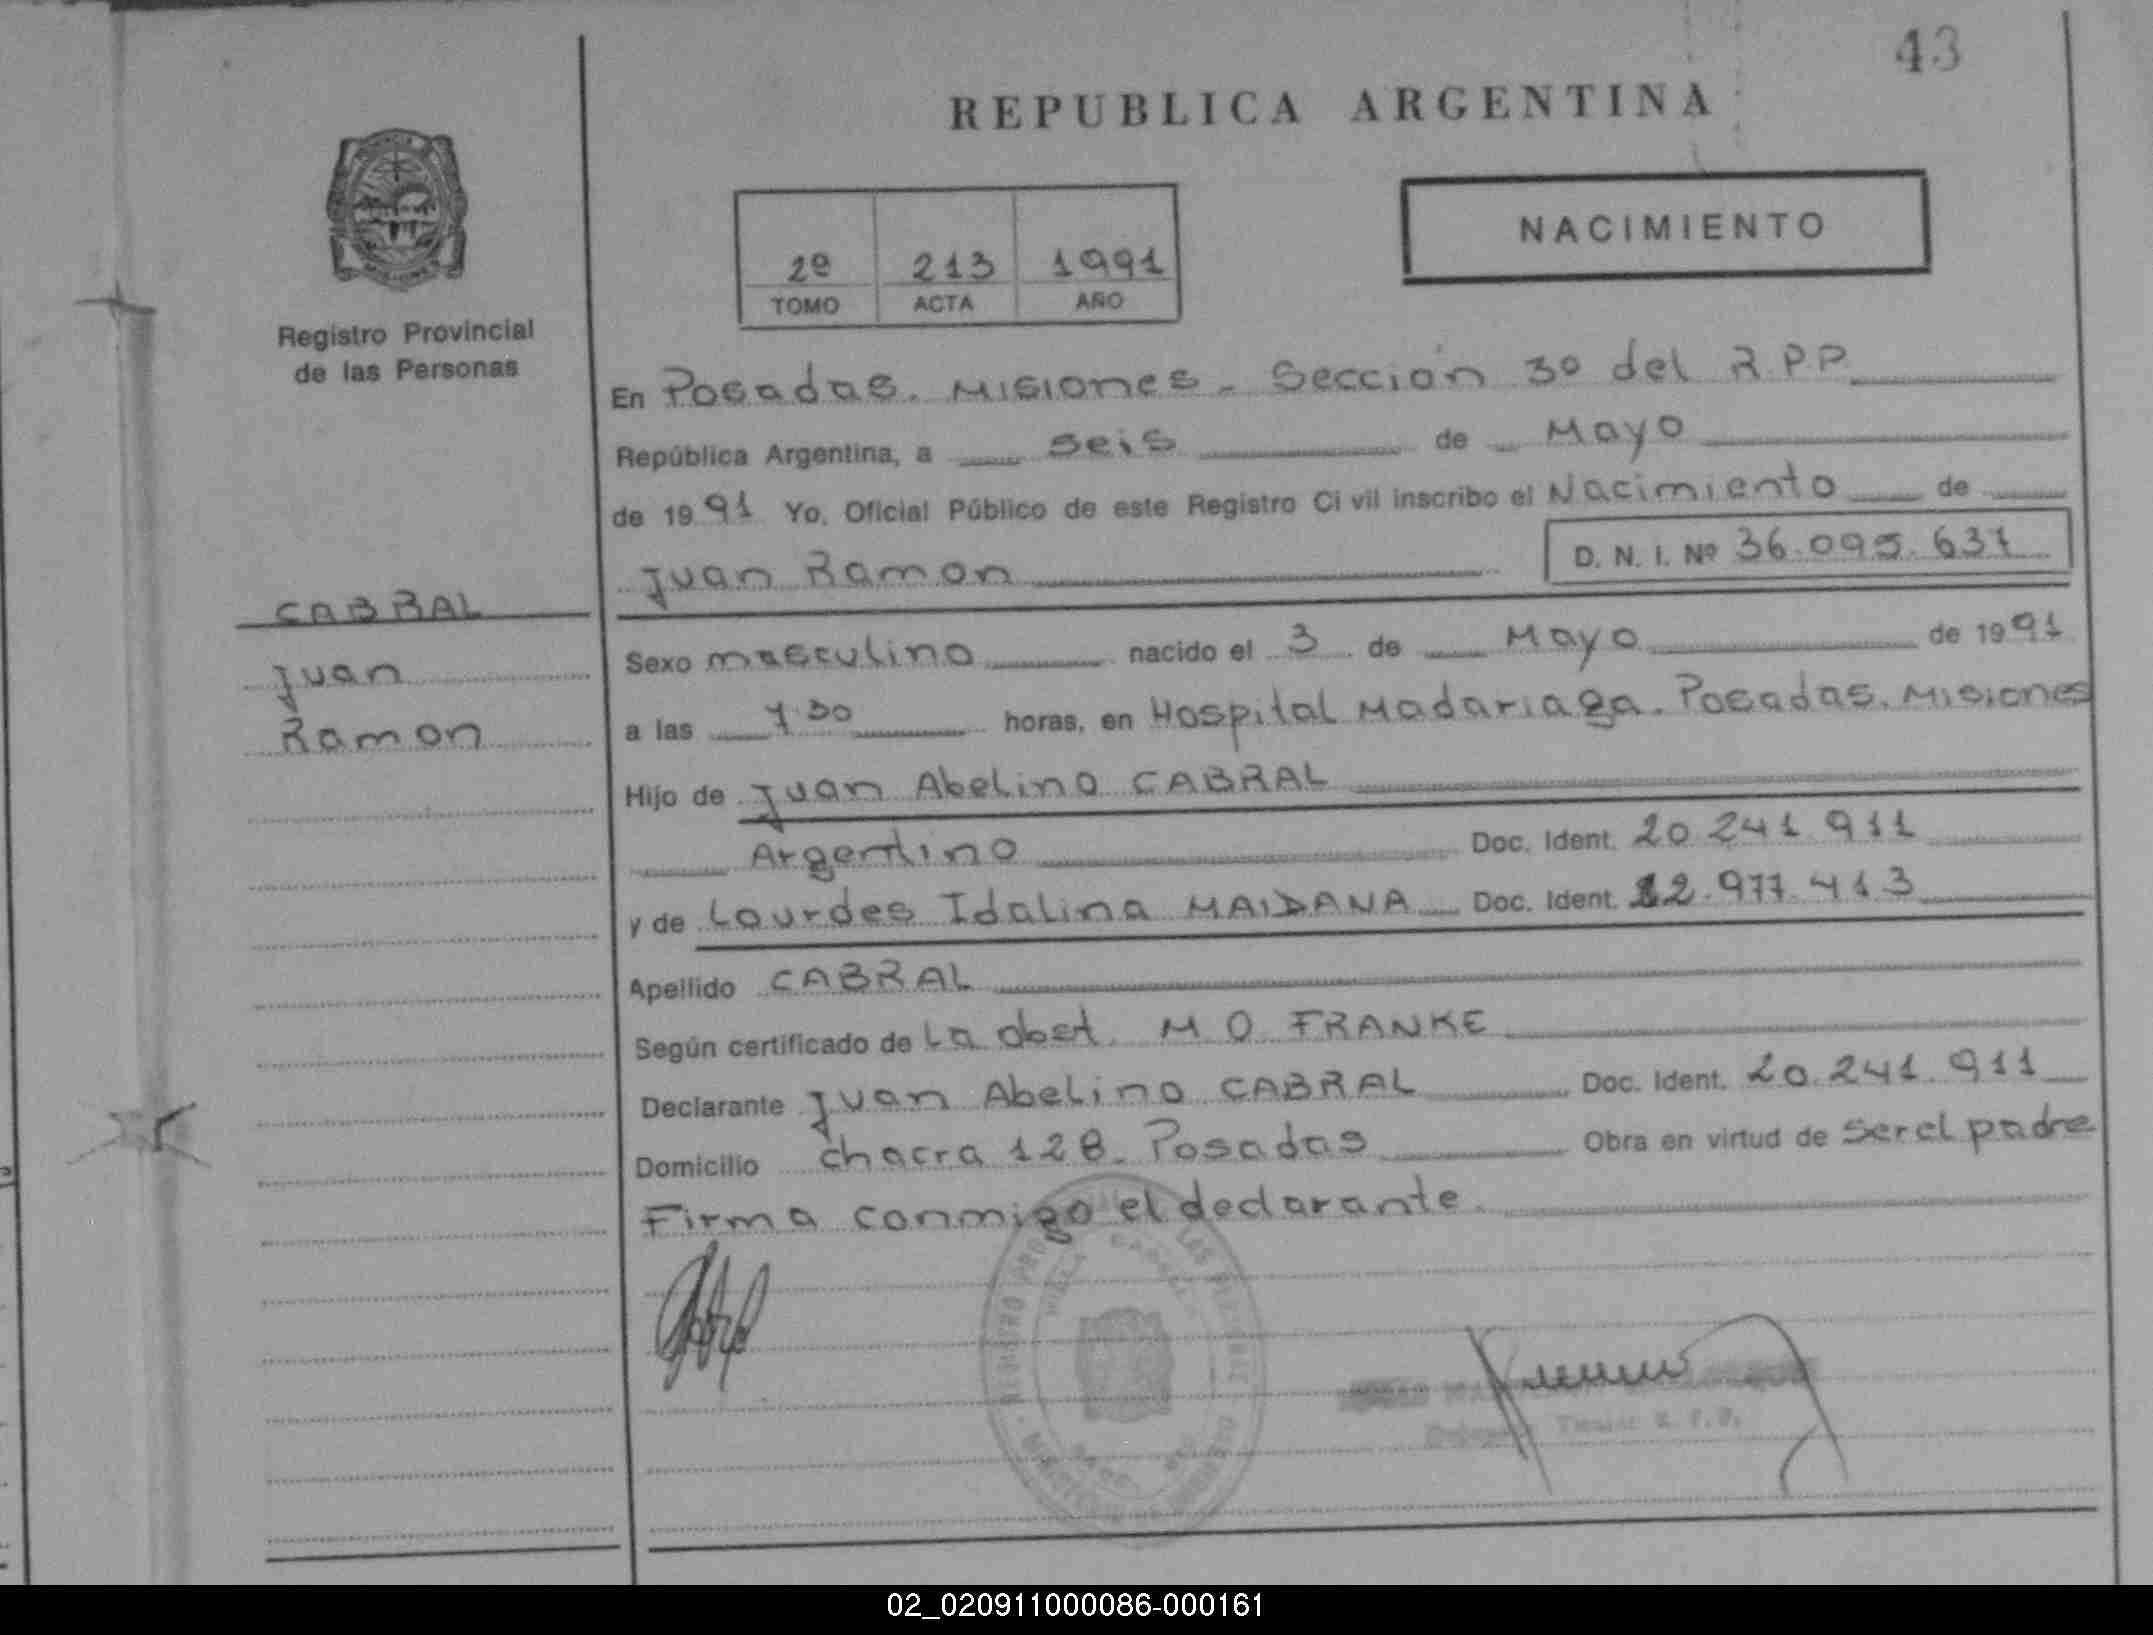 43
REPUBLICA ARGENTINA
NACIMIENTO
2º 213 1991
TOMO ACTA AÑO
Registro Provincial
de las Personas
En Posadas. Misiones - Sección 3º del R.P.P.
República Argentina, a seis de Mayo
de 1991 Yo, Oficial Público de este Registro Civil inscribo el Nacimiento de
Juan Ramon D. N. I. Nº 36.095.637
CABRAL
Juan
Ramon
Sexo masculino nacido el 3 de Mayo de 1991
a las 7 30 horas, en Hospital Madariaga. Posadas. Misiones
Hijo de Juan Abelino CABRAL
Argentino Doc. Ident. 20.241.911
y de Lourdes Idalina MAIDANA Doc. Ident. 12.977.413
Apellido CABRAL
Según certificado de La obst. M O FRANKE
Declarante Juan Abelino CABRAL Doc. Ident. 20.241.911
Domicilio chacra 128. Posadas Obra en virtud de ser el padre
Firma conmigo el declarante.
Titular R. P. P.
02_020911000086-000161